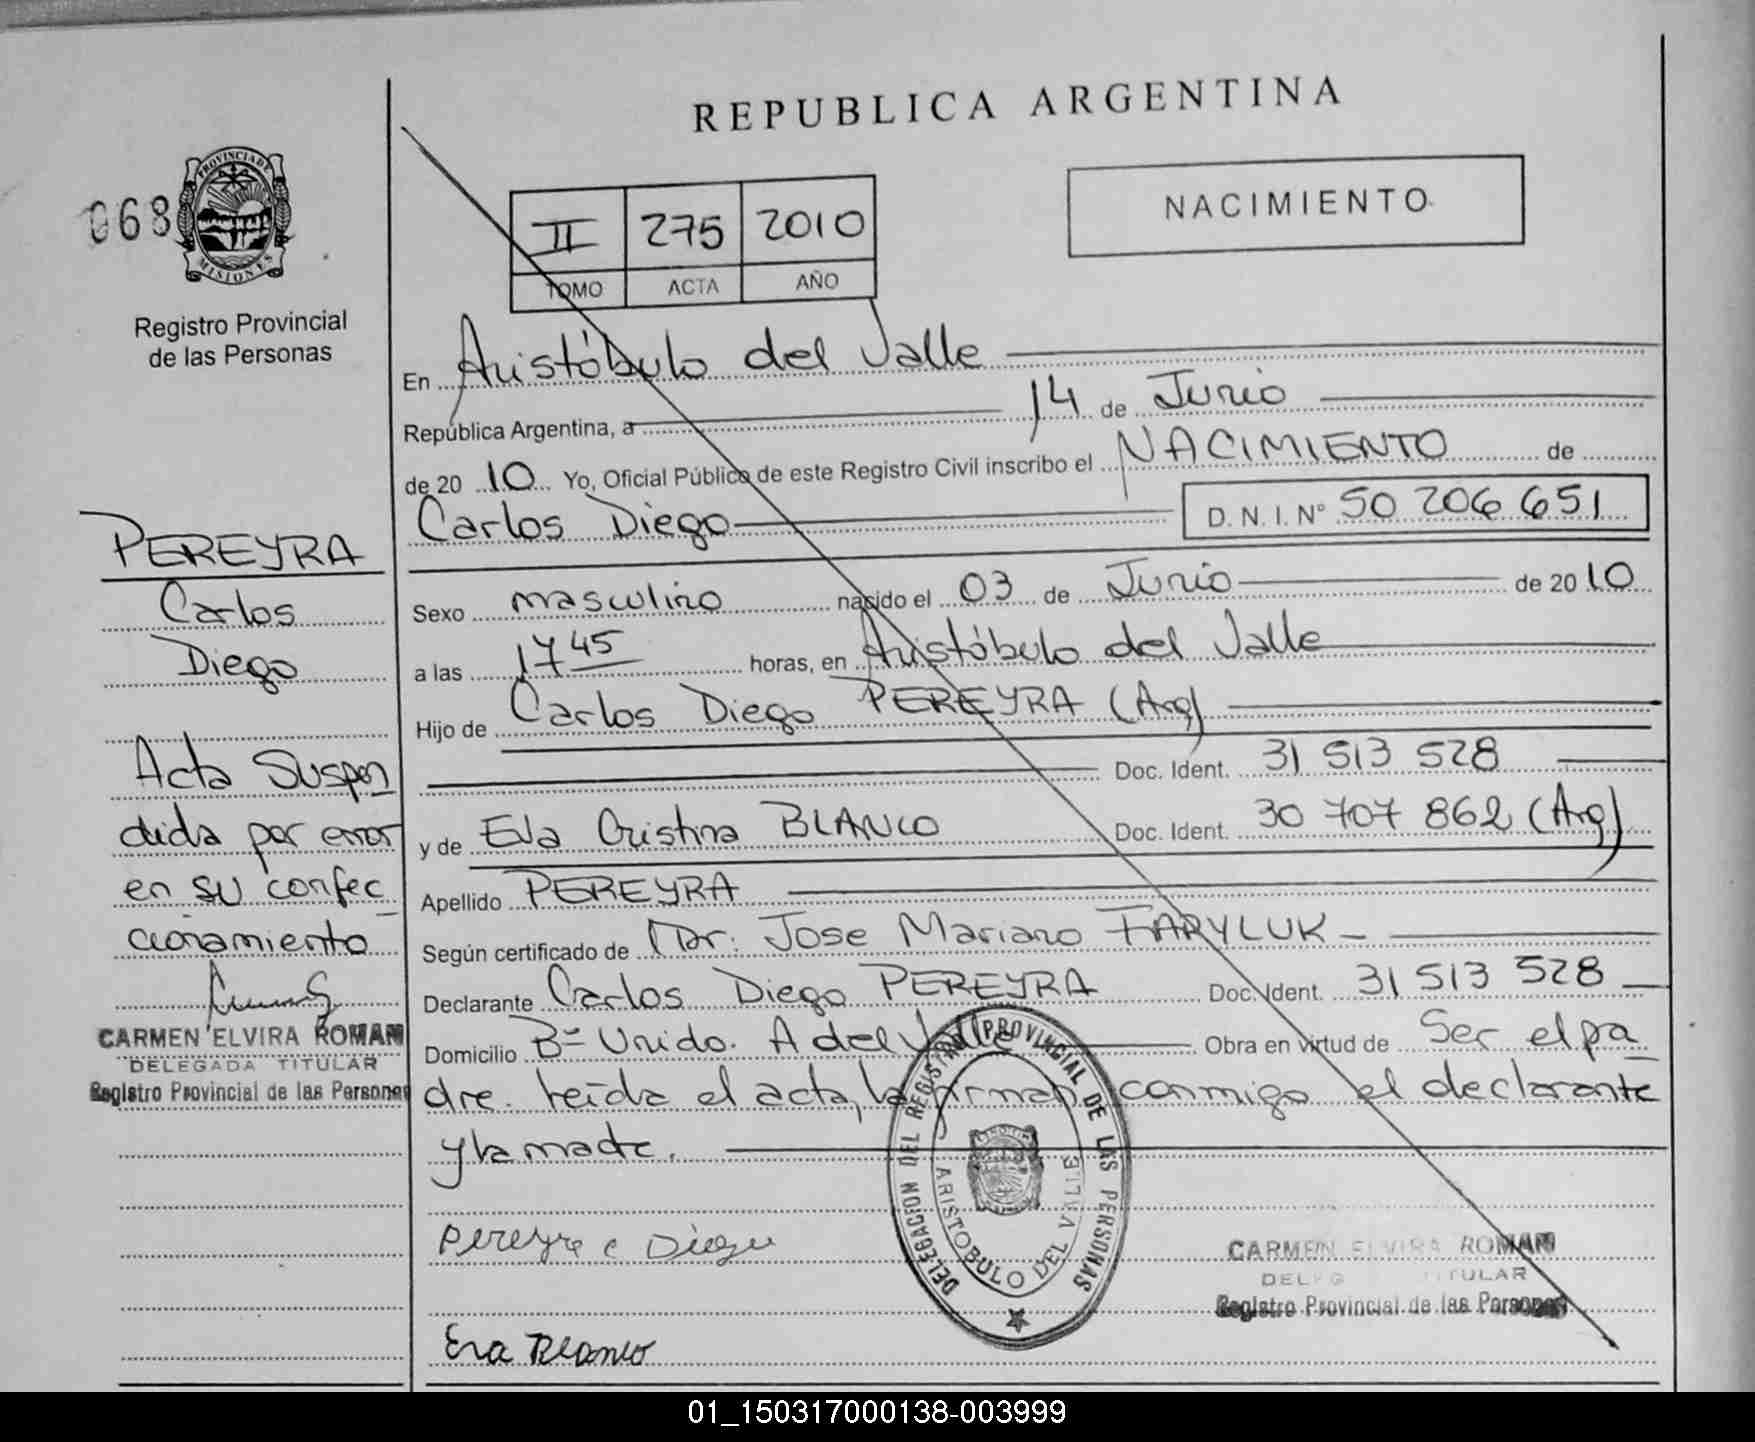 REPUBLICA ARGENTINA
068
PROVINCIA DE
MISIONES
Registro Provincial
de las Personas
II 275 2010
TOMO ACTA AÑO
NACIMIENTO
En Aristóbulo del Valle
República Argentina, a 14 de Junio
de 2010 Yo, Oficial Público de este Registro Civil inscribo el NACIMIENTO de
Carlos Diego D. N. I. Nº 50 206 651
Sexo masculino nacido el 03 de Junio de 2010
a las 17 45 horas, en Aristóbulo del Valle
Hijo de Carlos Diego PEREYRA (Arg)
Doc. Ident. 31 513 528
y de Eva Cristina BLANCO Doc. Ident. 30 707 862 (Arg)
Apellido PEREYRA
Según certificado de Dr. Jose Mariano FARYLUK
Declarante Carlos Diego PEREYRA Doc. Ident. 31 513 528
Domicilio Bº Unido. A del Valle Obra en virtud de Ser el pa
dre. leída el acta, la firman conmigo el declarante
y la madre.
PEREYRA
Carlos
Diego
Acta Suspen
dida por error
en su confec
cionamiento
CARMEN ELVIRA ROMAN
DELEGADA TITULAR
Registro Provincial de las Personas
Pereyra c Diego
Eva Blanco
DELEGACION DEL REGISTRO PROVINCIAL DE LAS PERSONAS
ARISTOBULO DEL VALLE
CARMEN ELVIRA ROMAN
DELEGADA TITULAR
Registro Provincial de las Personas
01_150317000138-003999